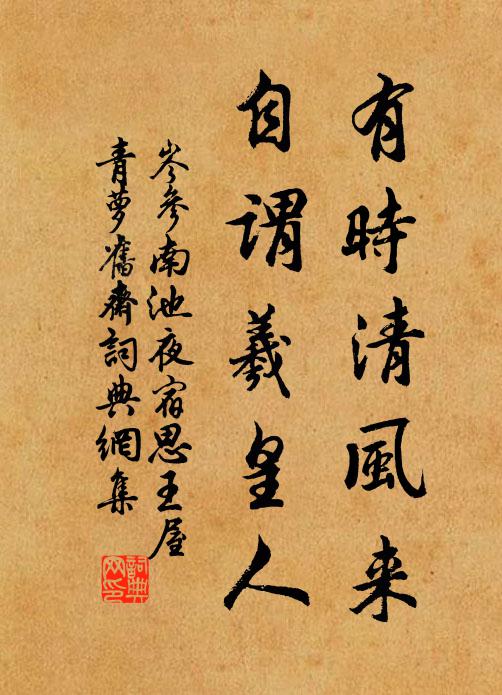 有時清風来
自謂羲皇人
岑參南池夜宿思王屋
青蘿舊齋詞典網集
詞典网印